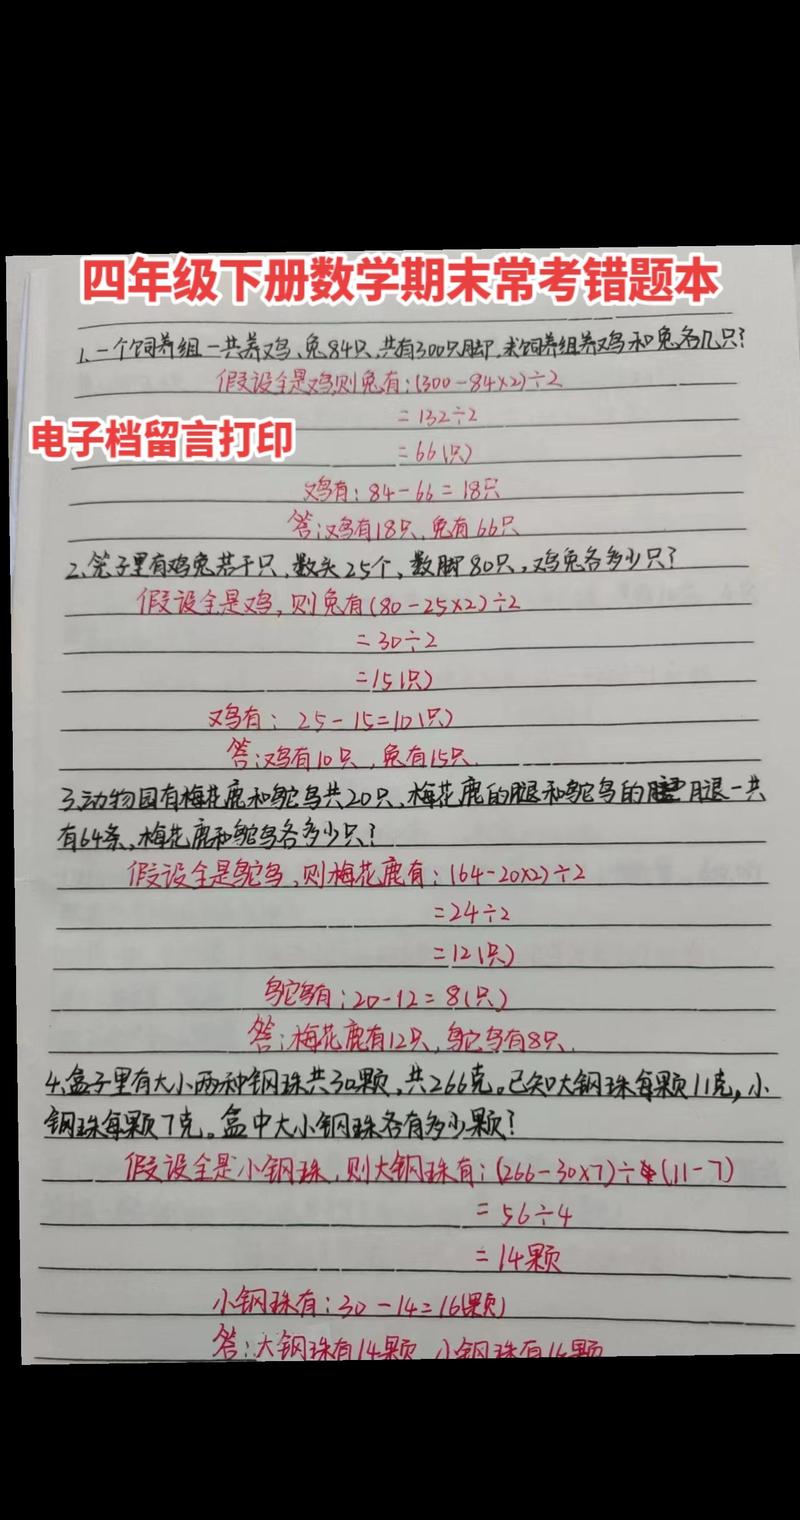 四年级下册数学期末常考错题本
1、一个饲养组一共养鸡、兔84只,共有300只脚,求饲养组养鸡和兔各几只?
假设全是鸡,则兔有:(300-84×2)÷2
=132÷2
电子档留言打印
=66(只)
鸡有:84-66=18只
答:鸡有18只,兔有66只
2、笼子里有鸡兔若干只,数头25个,数脚80只,鸡兔各多少只?
假设全是鸡,则兔有(80-25×2)÷2
=30÷2
=15(只)
鸡有: 25-15=10(只)
答:鸡有10只,兔有15只.
3、动物园有梅花鹿和鸵鸟共20只,梅花鹿的腿和鸵鸟的腿一共
有64条,梅花鹿和鸵鸟各多少只?
假设全是鸵鸟,则梅花鹿有:(64-20×2)÷2
=24÷2
=12(只)
鸵鸟有:20-12=8(只)
答:梅花鹿有12只,鸵鸟有8只.
4、盒子里有大小两种钢珠共30颗,共266克。已知大钢珠每颗11克,小
钢珠每颗7克。盒中大小钢珠各有多少颗?
假设全是小钢珠,则大钢珠有:(266-30×7)÷(11-7)
=56÷4
=14颗
小钢珠有:30-14=16(颗)
答:大钢珠有14颗,小钢珠有16颗